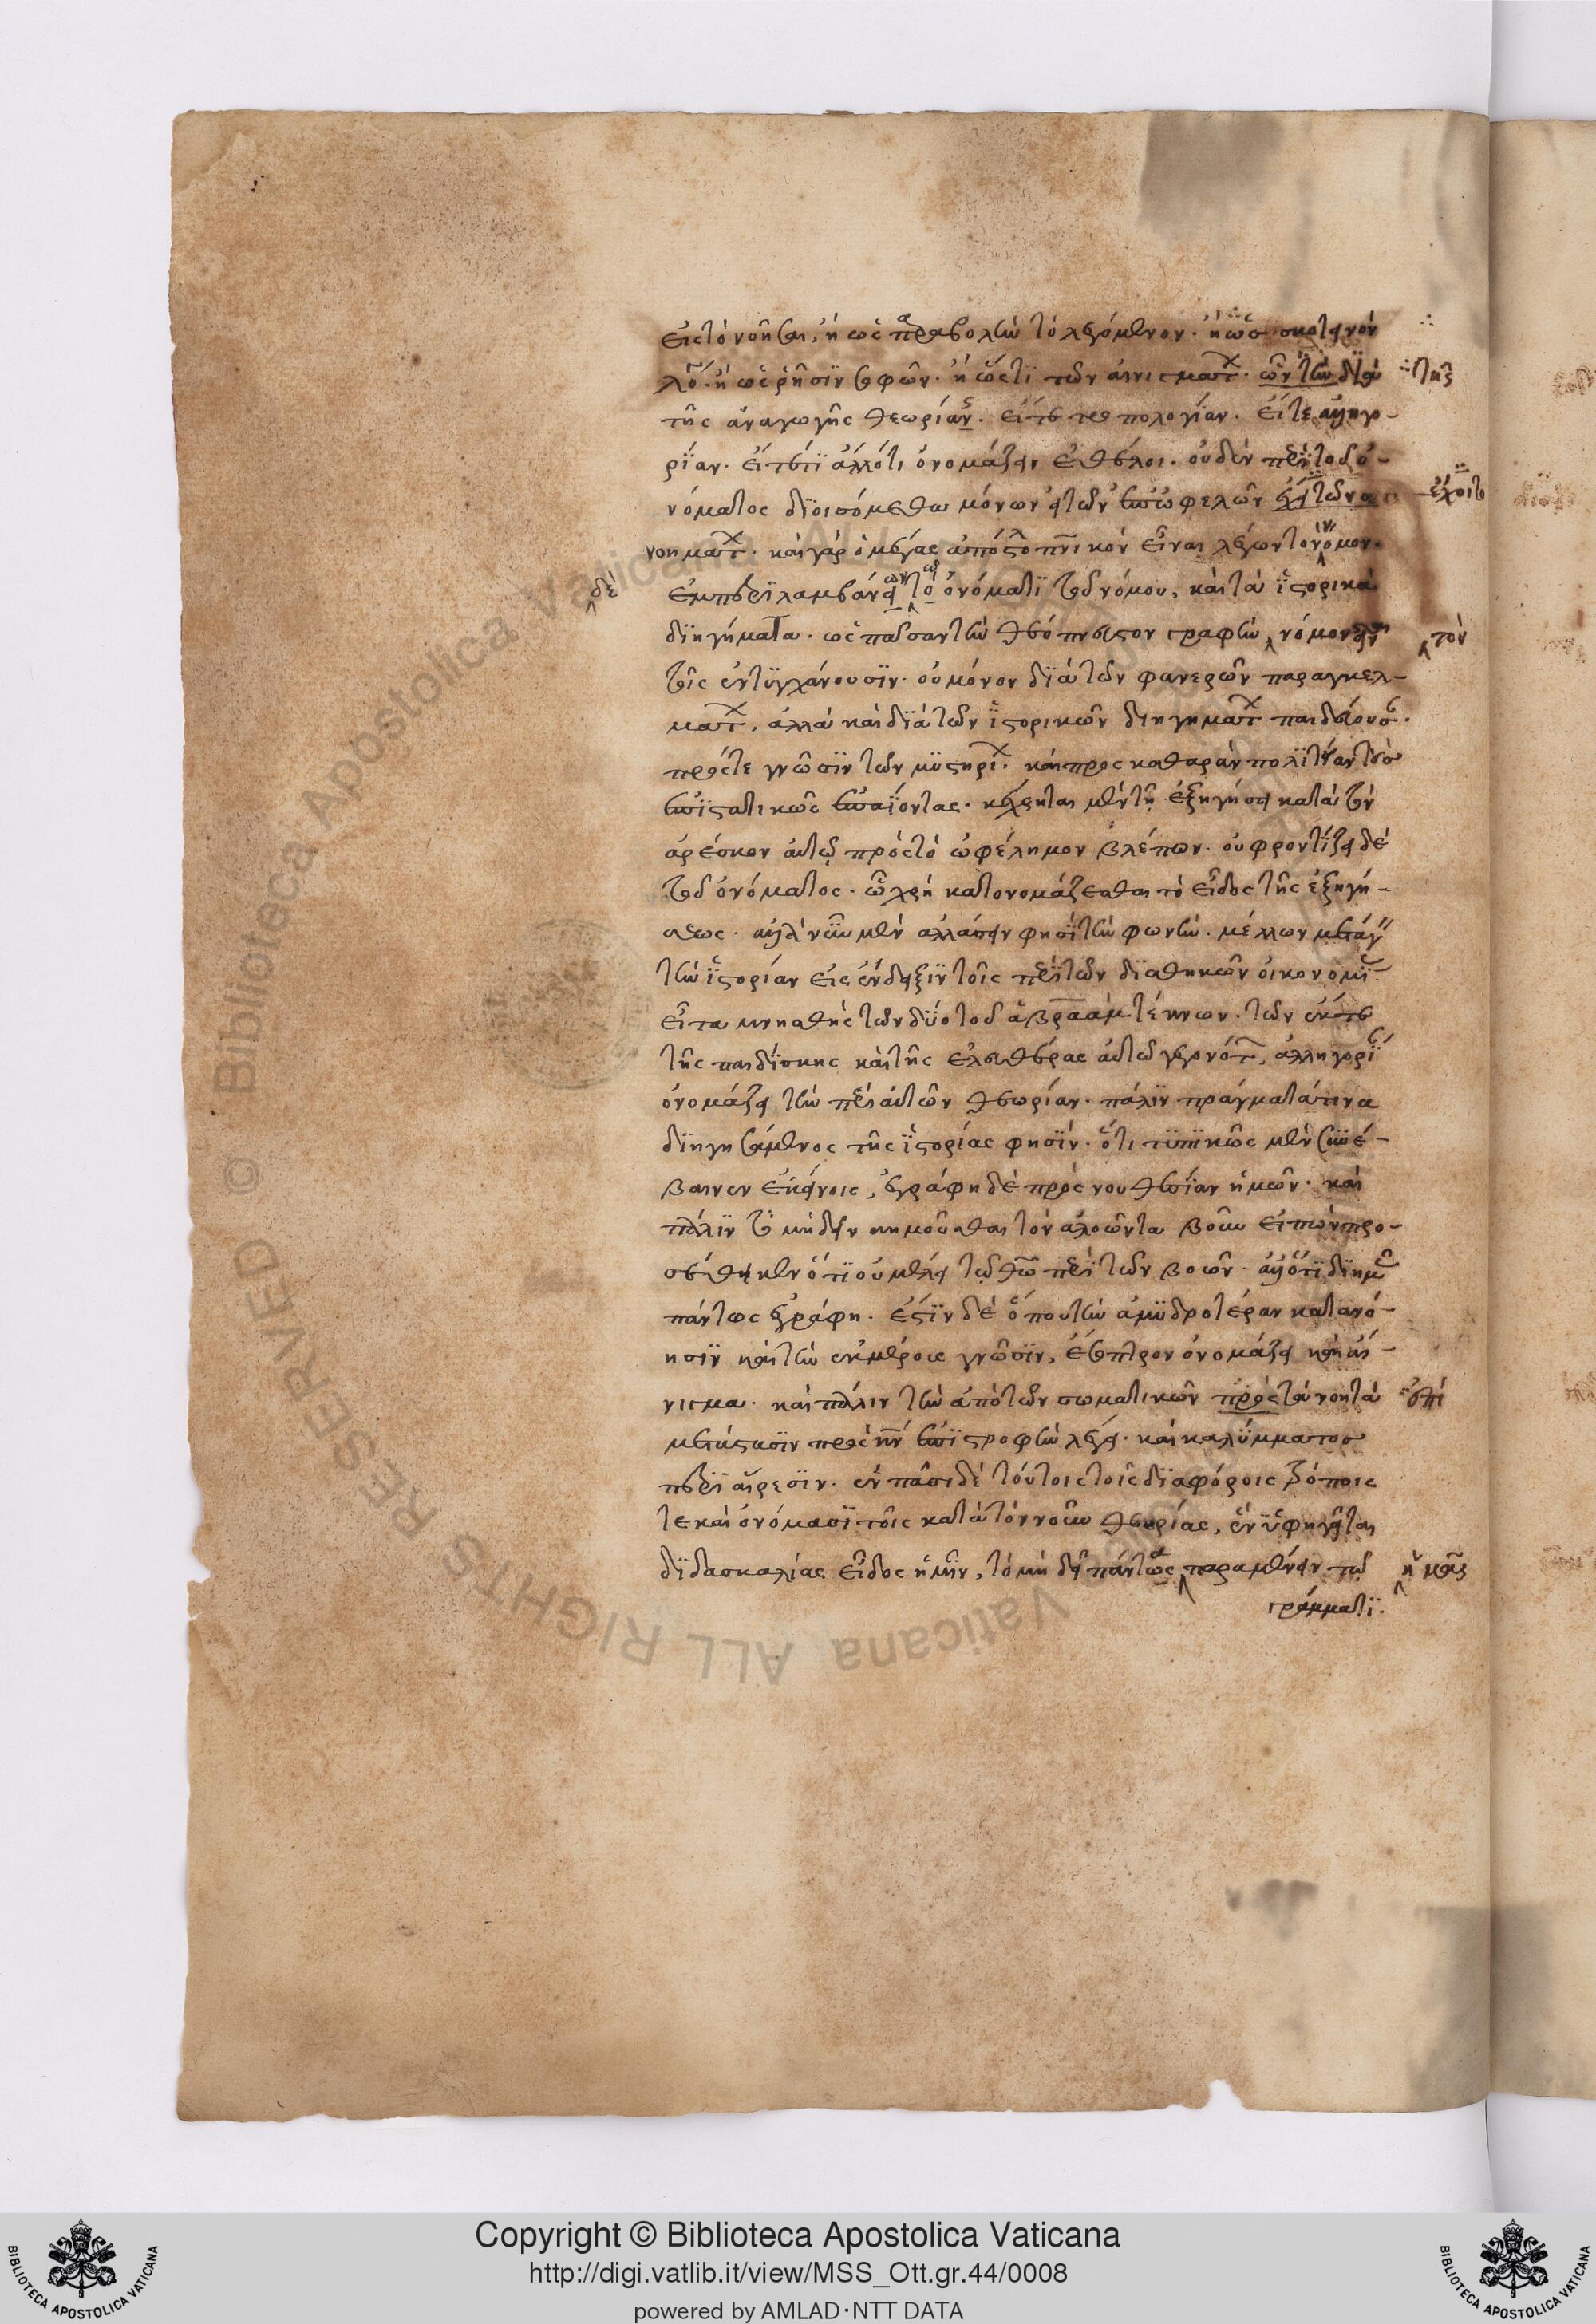 εἰς τὸ νοῆσαι, ἢ ὡς παραβολὴν τὸ λεγόμενον. ἢ ὡς σκοτεινὸν
λόγον. ἢ ὡς ῥῆσιν σοφῶν. ἢ ὥς τι τῶν αἰνιγμάτων. ὧν τὴν διὰ
τῆς
τῆς ἀναγωγῆς θεωρίαν. εἴτε τροπολογίαν. εἴτε ἀλληγο-
ρίαν. εἴτέ τι ἄλλό τι ὀνομάζειν ἐθέλοι. οὐδὲν περὶ τοῦ ὀ-
νόματος διοισόμεθα μόνον εἰ τῶν ἐπωφελῶν
ἔχοιτο
νοημάτων. καὶ γὰρ ὁ μέγας ἀπόστολος πνικὸν εἶναι λέγων τὸν νόμον.
δὲ
ἐμπεριλαμβάνει τῷ ὀνόματι τοῦ νόμου, καὶ τὰ ἱστορικὰ
διηγήματα. ὡς πᾶσαν τὴν θεόπνευστον γραφὴν νόμον
τὸν
τοῖς ἐντυγχάνουσιν. οὐ μόνον διὰ τῶν φανερῶν παραγγελ-
μάτων, ἀλλὰ καὶ διὰ τῶν ἱστορικῶν διηγημάτων παιδεύουσαν.
πρός τε γνῶσιν τῶν μυστηρίων. καὶ πρὸς καθαρὰν πολιτείαν τοὺς
ἐπιστατικῶς ἐπαΐοντας. κέχρηται μὲν τῇ ἐξηγήσει κατὰ τὸ
ἀρέσκον αὐτῷ πρὸς τὸ ὠφέλημον βλέπων. οὐ φροντίζει δὲ
τοῦ ὀνόματος. ᾧ χρὴ κατονομάζεσθαι τὸ εἶδος τῆς ἐξηγή-
σεως. ἀλλὰ νῦν μὲν ἀλλάσειν φησὶ τὴν φωνὴν. μέλλων μετάγειν
τὴν ἱστορίαν εἰς ἔνδειξιν τῆς περὶ τῶν διαθηκῶν οἰκονομίας
εἶτα μνησθεὶς τῶν δύο τοῦ ἀβραὰμ τέκνων. τῶν ἔκ τε
τῆς παιδίσκης καὶ τῆς ἐλευθέρας αὐτῷ γεγονότων, ἀλληγορίαν
ὀνομάζει τὴν περὶ αὐτῶν θεωρίαν. πάλιν πράγματά τινα
διηγησάμενος τῆς ἱστορίας φησὶν. ὅτι τυπικῶς μὲν συνέ-
βαινεν ἐκείνοις, ἐγράφη δὲ πρὸς νουθεσίαν ἡμῶν. καὶ
πάλιν τὸ μὴ δεῖν κημοῦσθαι τὸν ἀλοῶντα βοῦν εἰπὼν προ-
σέθηκεν ὅτι οὐ μέλει τῷ θῶ περὶ τῶν βοῶν. ἀλλ' ὅτι δι' ἡμᾶς
πάντως ἐγράφη. ἔστιν δὲ ὅπου τὴν ἀμυδροτέραν κατανό-
ησιν καὶ τὴν ἐκ μέρους γνῶσιν, ἔσοπτρον ὀνομάζει καὶ αἴ-
νιγμα. καὶ πάλιν τὴν ἀπὸ τῶν σωματικῶν πρὸς τὰ νοητὰ
ἐπὶ
μετάστασιν πρὸς κν ἐπιστροφὴν λέγει. καὶ καλύμματος
περιαίρεσιν. ἐν πᾶσι δὲ τούτοις τοῖς διαφόροις τρόποις
τε καὶ ὀνόμασι τῆς κατὰ τὸν νοῦν θεωρίας, ἓν ὑφηγεῖται
διδασκαλίας εἶδος ἡμῖν, τὸ μὴ δεῖν πάντως παραμένειν τῷ
ἡμᾶς
γράμματι.
Copyright © Biblioteca Apostolica Vaticana
http://digi.vatlib.it/view/MSS_Ott.gr.44/0008
powered by AMLAD·NTT DATA